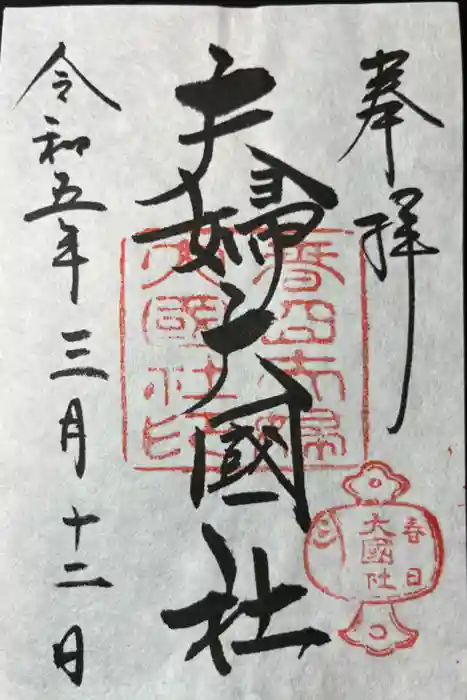 奉拝
夫婦大國社
令和五年三月十二日
春日夫婦
大國社印
春日
大國社